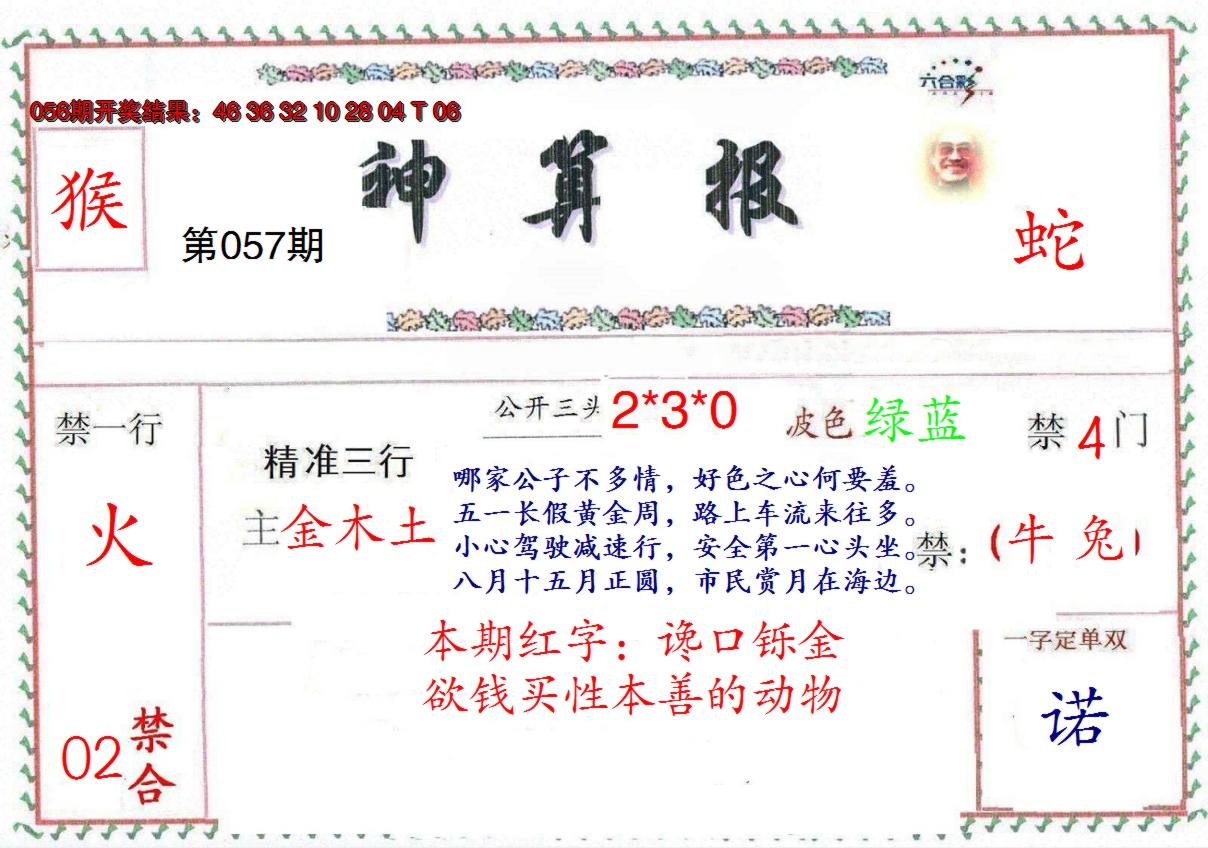 六合彩
056期开奖结果：46 36 32 10 28 04 T 06
神算报
猴
第057期
蛇
禁一行
火
02
禁合
精准三行
主金木土
公开三头 2*3*0
波色 绿蓝
禁 4 门
哪家公子不多情，好色之心何要羞。
五一长假黄金周，路上车流来往多。
小心驾驶减速行，安全第一心头坐。
八月十五月正圆，市民赏月在海边。
禁：（牛 兔）
本期红字：谗口铄金
欲钱买性本善的动物
一字定单双
诺